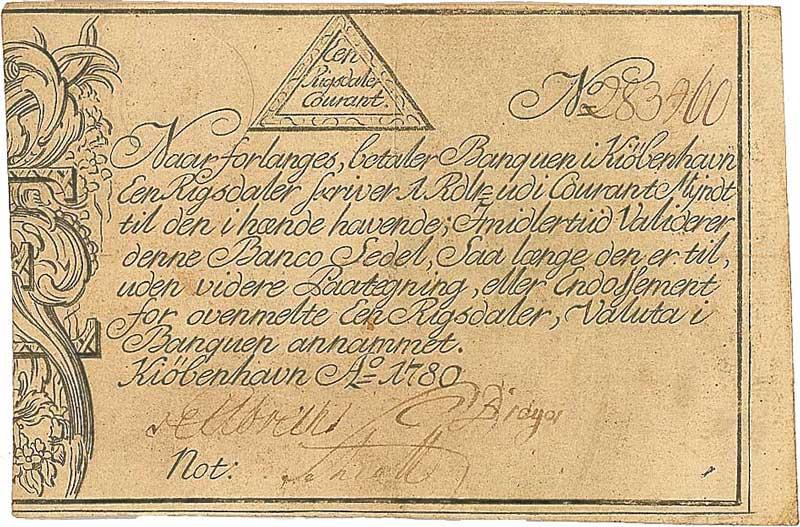 Een
Rigsdaler
Courant.
No 283260
Naar forlanges, betaler Banquen i Kiöbenhavn
Een Rigsdaler skriver 1. Rdlr. udi Courant Mÿndt
til den i hænde havende; Imidlertiid Validerer
denne Banco Sedel, Saa længe den er til,
uden videre Paategning, eller Endossement
for ovenmelte Een Rigsdaler, Valuta i
Banquen annammet.
Kiöbenhavn Ao 1780
Not: